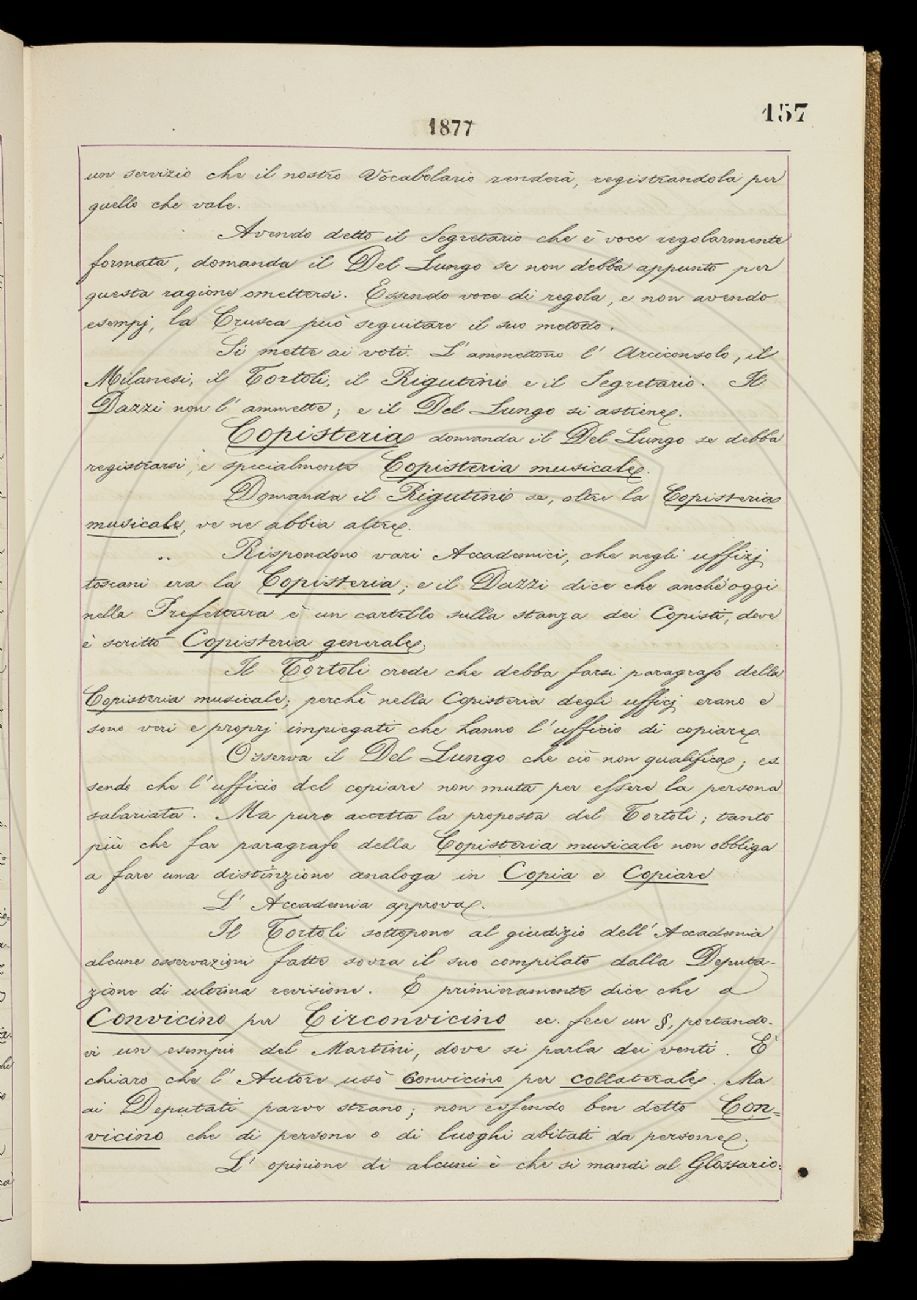 157
1877
un servizio che il nostro Vocabolario renderà, registrandola per
quello che vale.
Avendo detto il Segretario che è voce regolarmente
formata, domanda il Del Lungo se non debba appunto per
questa ragione omettersi. Essendo voce di regola, e non avendo
esempj, la Crusca può seguitare il suo metodo.
Si mette ai voti. L'ammettono l'Arciconsolo, il
Milanesi, il Tortoli, il Rigutini e il Segretario. Il
Dazzi non l'ammette; e il Del Lungo si astiene.
Copisteria domanda il Del Lungo se debba
registrarsi, e specialmente Copisteria musicale.
Domanda il Rigutini se, oltre la Copisteria
musicale, ve ne abbia altre.
Rispondono vari Accademici, che negli uffizj
toscani era la Copisteria; e il Dazzi dice che anche oggi
nella Prefettura è un cartello sulla stanza dei Copisti, dove
è scritto Copisteria generale.
Il Tortoli crede che debba farsi paragrafo della
Copisteria musicale; perchè nella Copisteria degli ufficj erano e
sono veri e proprj impiegati che hanno l'ufficio di copiare.
Osserva il Del Lungo che ciò non qualifica; es
sendo che l'ufficio del copiare non muta per essere la persona
salariata. Ma pure accetta la proposta del Tortoli; tanto
più che far paragrafo della Copisteria musicale non obbliga
a fare una distinzione analoga in Copia e Copiare
L'Accademia approva.
Il Tortoli sottopone al giudizio dell'Accademia
alcune osservazioni fatte sovra il suo compilato dalla Deputa-
zione di ultima revisione. E primieramente dice che a
Convicino per Circonvicino ec. fece un §, portando-
vi un esempio del Martini, dove si parla dei venti. È
chiaro che l'Autore usò Convicino per collaterale. Ma
ai Deputati parve strano; non essendo ben detto Con=
vicino che di persone o di luoghi abitati da persone.
L'opinione di alcuni è che si mandi al Glossario: